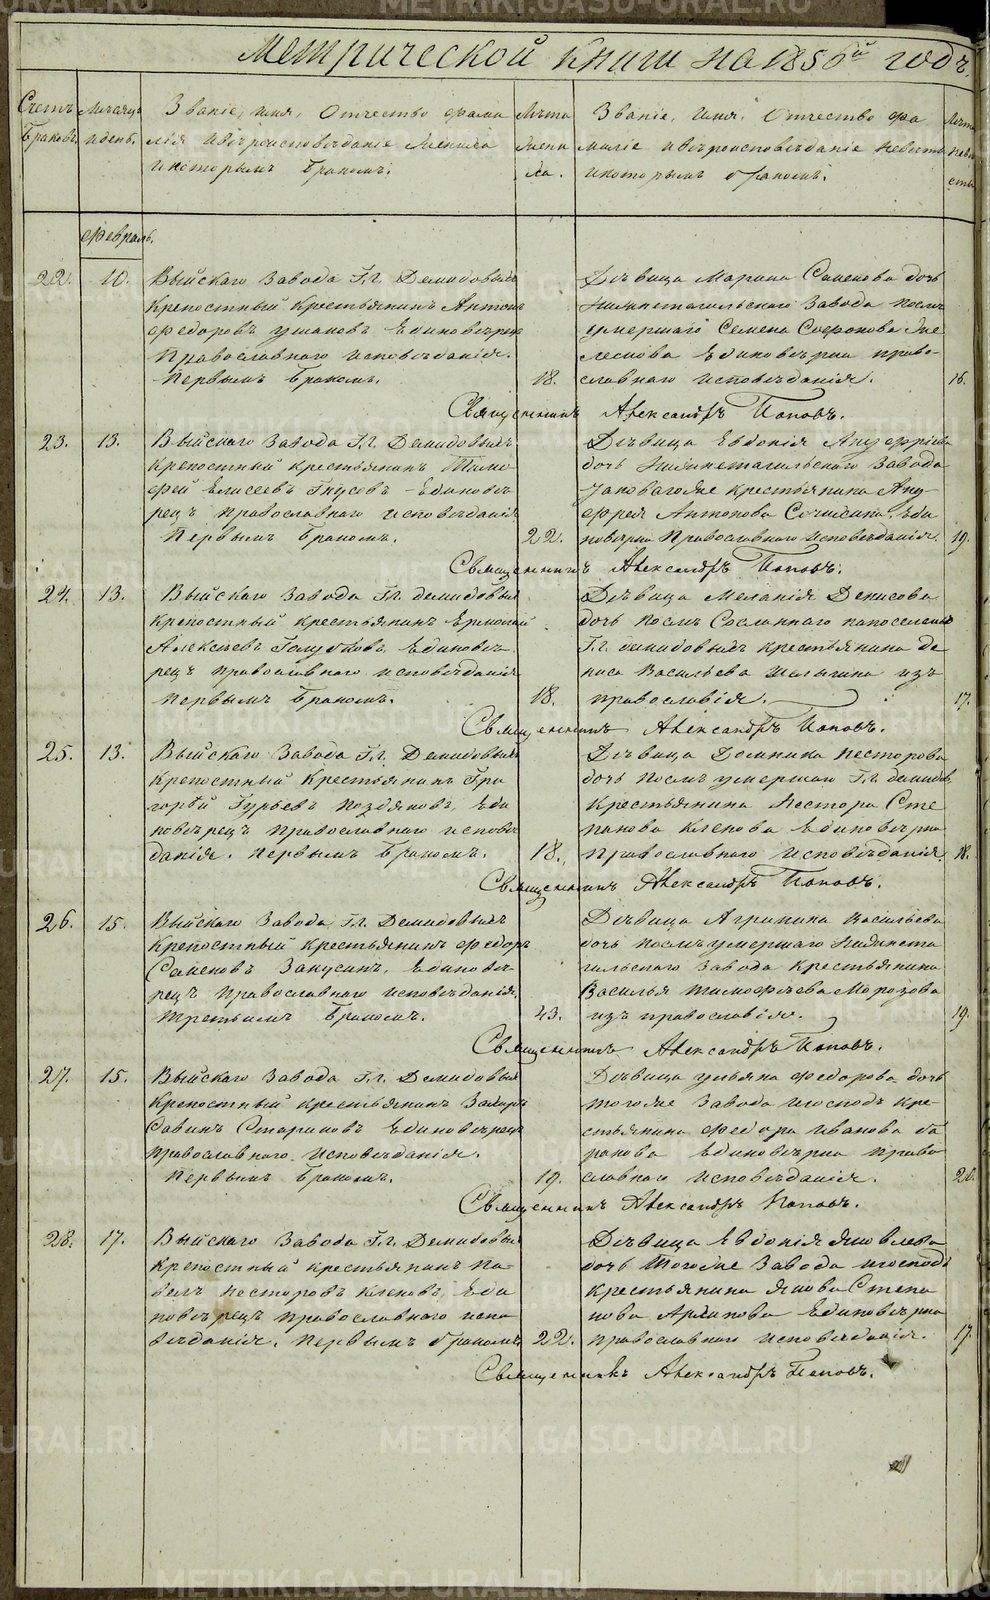 Метрической книги на 1856й годъ.
Счетъ Браковъ.
Мѣсяцъ и день.
Званіе, имя, Отчество фами
лія и вѣроисповѣданіе Жениха
и которымъ Бракомъ.
Лѣта
Жени
ха.
Званіе, Имя, Отчество фа
миліе и вѣроисповѣданіе невѣсты
и которымъ бракомъ.
Лѣта
невѣ
сты
Февраль.
22. 10.
Выйскаго Завода Г.г. Демидовыхъ
крепостный крестьянинъ Антонъ
Федоровъ Ушаковъ Единовѣрец
Православнаго исповѣданія.
Первымъ Бракомъ.
18.
Дѣвица Марина Семенова дочь
Нижнетагильскаго Завода послѣ
умершаго Семена Софонова
Единовѣрка право-
славнаго исповѣданія.
16.
Священникъ Александръ Поповъ.
23. 13.
Выйскаго Завода Г.г. Демидовыхъ
крепостный крестьянинъ Тимо
фей Елисеевъ Гнусовъ Единовѣ
рецъ православнаго исповѣданія
Первымъ Бракомъ.
22.
Дѣвица Евдокія
дочь Нижнетагильскаго Завода
крестьянина
Антонова Еди
новѣрка Православнаго исповѣданія.
19.
Священникъ Александръ Поповъ.
24. 13.
Выйскаго Завода Г.г. Демидовых
крепостный крестьянинъ Ермолай
Алексѣевъ Голубковъ Единовѣ
рецъ православнаго исповѣданія
первымъ Бракомъ.
18.
Дѣвица Меланія Денисова
дочь послѣ Сосланнаго на поселеніе
Г.г. Демидовыхъ крестьянина Де
ниса Васильева изъ
православія.
17.
Священникъ Александръ Поповъ.
25. 13.
Выйскаго Завода Г.г. Демидовыхъ
крепостный Крестьянинъ Гри
горій Гурьевъ Поздяковъ Еди
новѣрецъ Православнаго исповѣ
данія. Первымъ Бракомъ.
18.
Дѣвица Домника Нестерова
дочь послѣ умершаго Г.г. Демидов
крестьянина Нестора Сте
панова Клепова Единовѣрка
Православнаго исповѣданія.
18.
Священникъ Александръ Поповъ.
26. 15.
Выйскаго Завода Г.г. Демидовыхъ
крепостный крестьянинъ Федоръ
Семеновъ Закусинъ Единовѣ-
рецъ Православнаго исповѣданія
Третьимъ Бракомъ.
43.
Дѣвица Агрипина Васильева
дочь послѣ умершаго Нижнета
гильскаго Завода Крестьянина
Василья Тимофѣева Морозова
изъ православія.
19.
Священникъ Александръ Поповъ.
27. 15.
Выйскаго Завода Г.г. Демидовых
крепостный крестьянинъ Захаръ
Савинъ Стариковъ Единовѣрецъ
православнаго исповѣданія.
Первымъ Бракомъ.
19.
Дѣвица Ульяна Федорова дочь
тогоже Завода и господъ кре-
стьянина Федора Иванова Ба
ранова Единовѣрка право
славнаго исповѣданія.
20.
Священникъ Александръ Поповъ.
28. 17.
Выйскаго Завода Г.г. Демидовых
крепостный крестьянинъ Па-
велъ Несторовъ Клеповъ, Еди
новѣрецъ православнаго испо
вѣданія. Первымъ бракомъ
22.
Дѣвица Евдокія Яковлева
дочь тогоже Завода и господъ
крестьянина Якова Степа
нова Архипова Единовѣрка
православнаго исповѣданія.
17.
Священникъ Александръ Поповъ.
METRIKI.GASO-URAL.RU